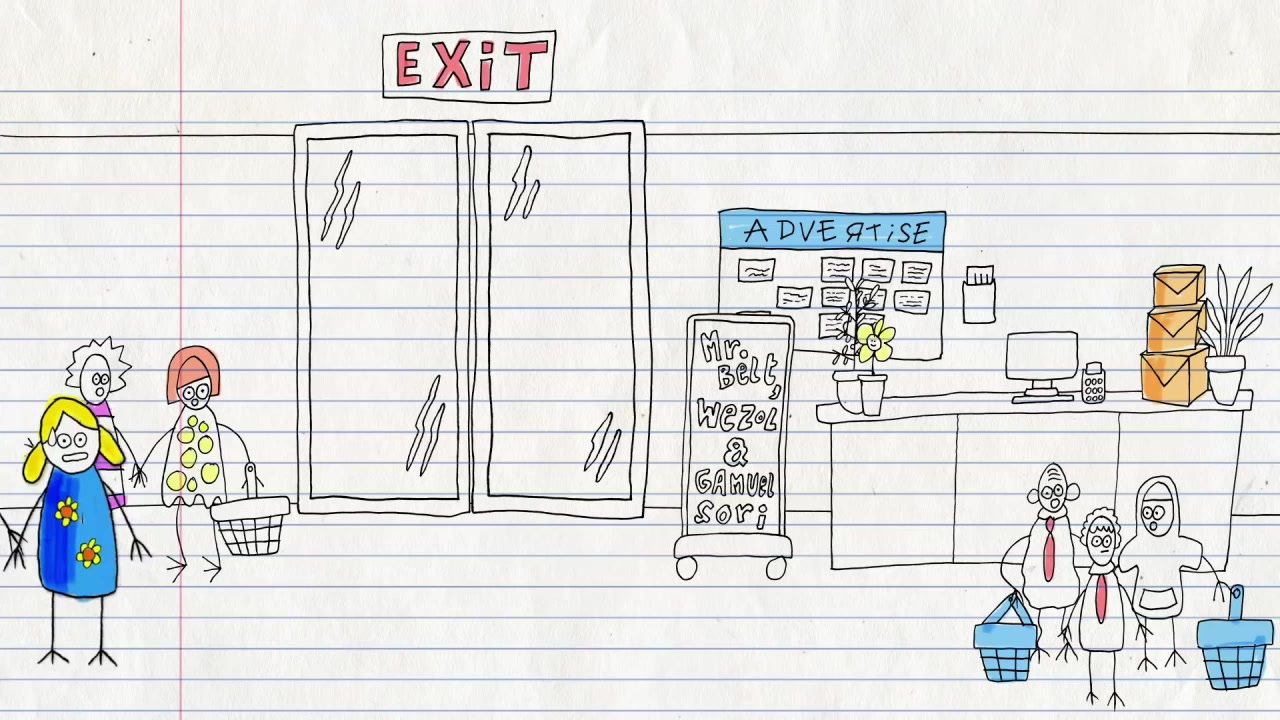 EXiT
ADVERTiSE
Mr.
Belt,
Wezol
&
GAMUEl
Sori